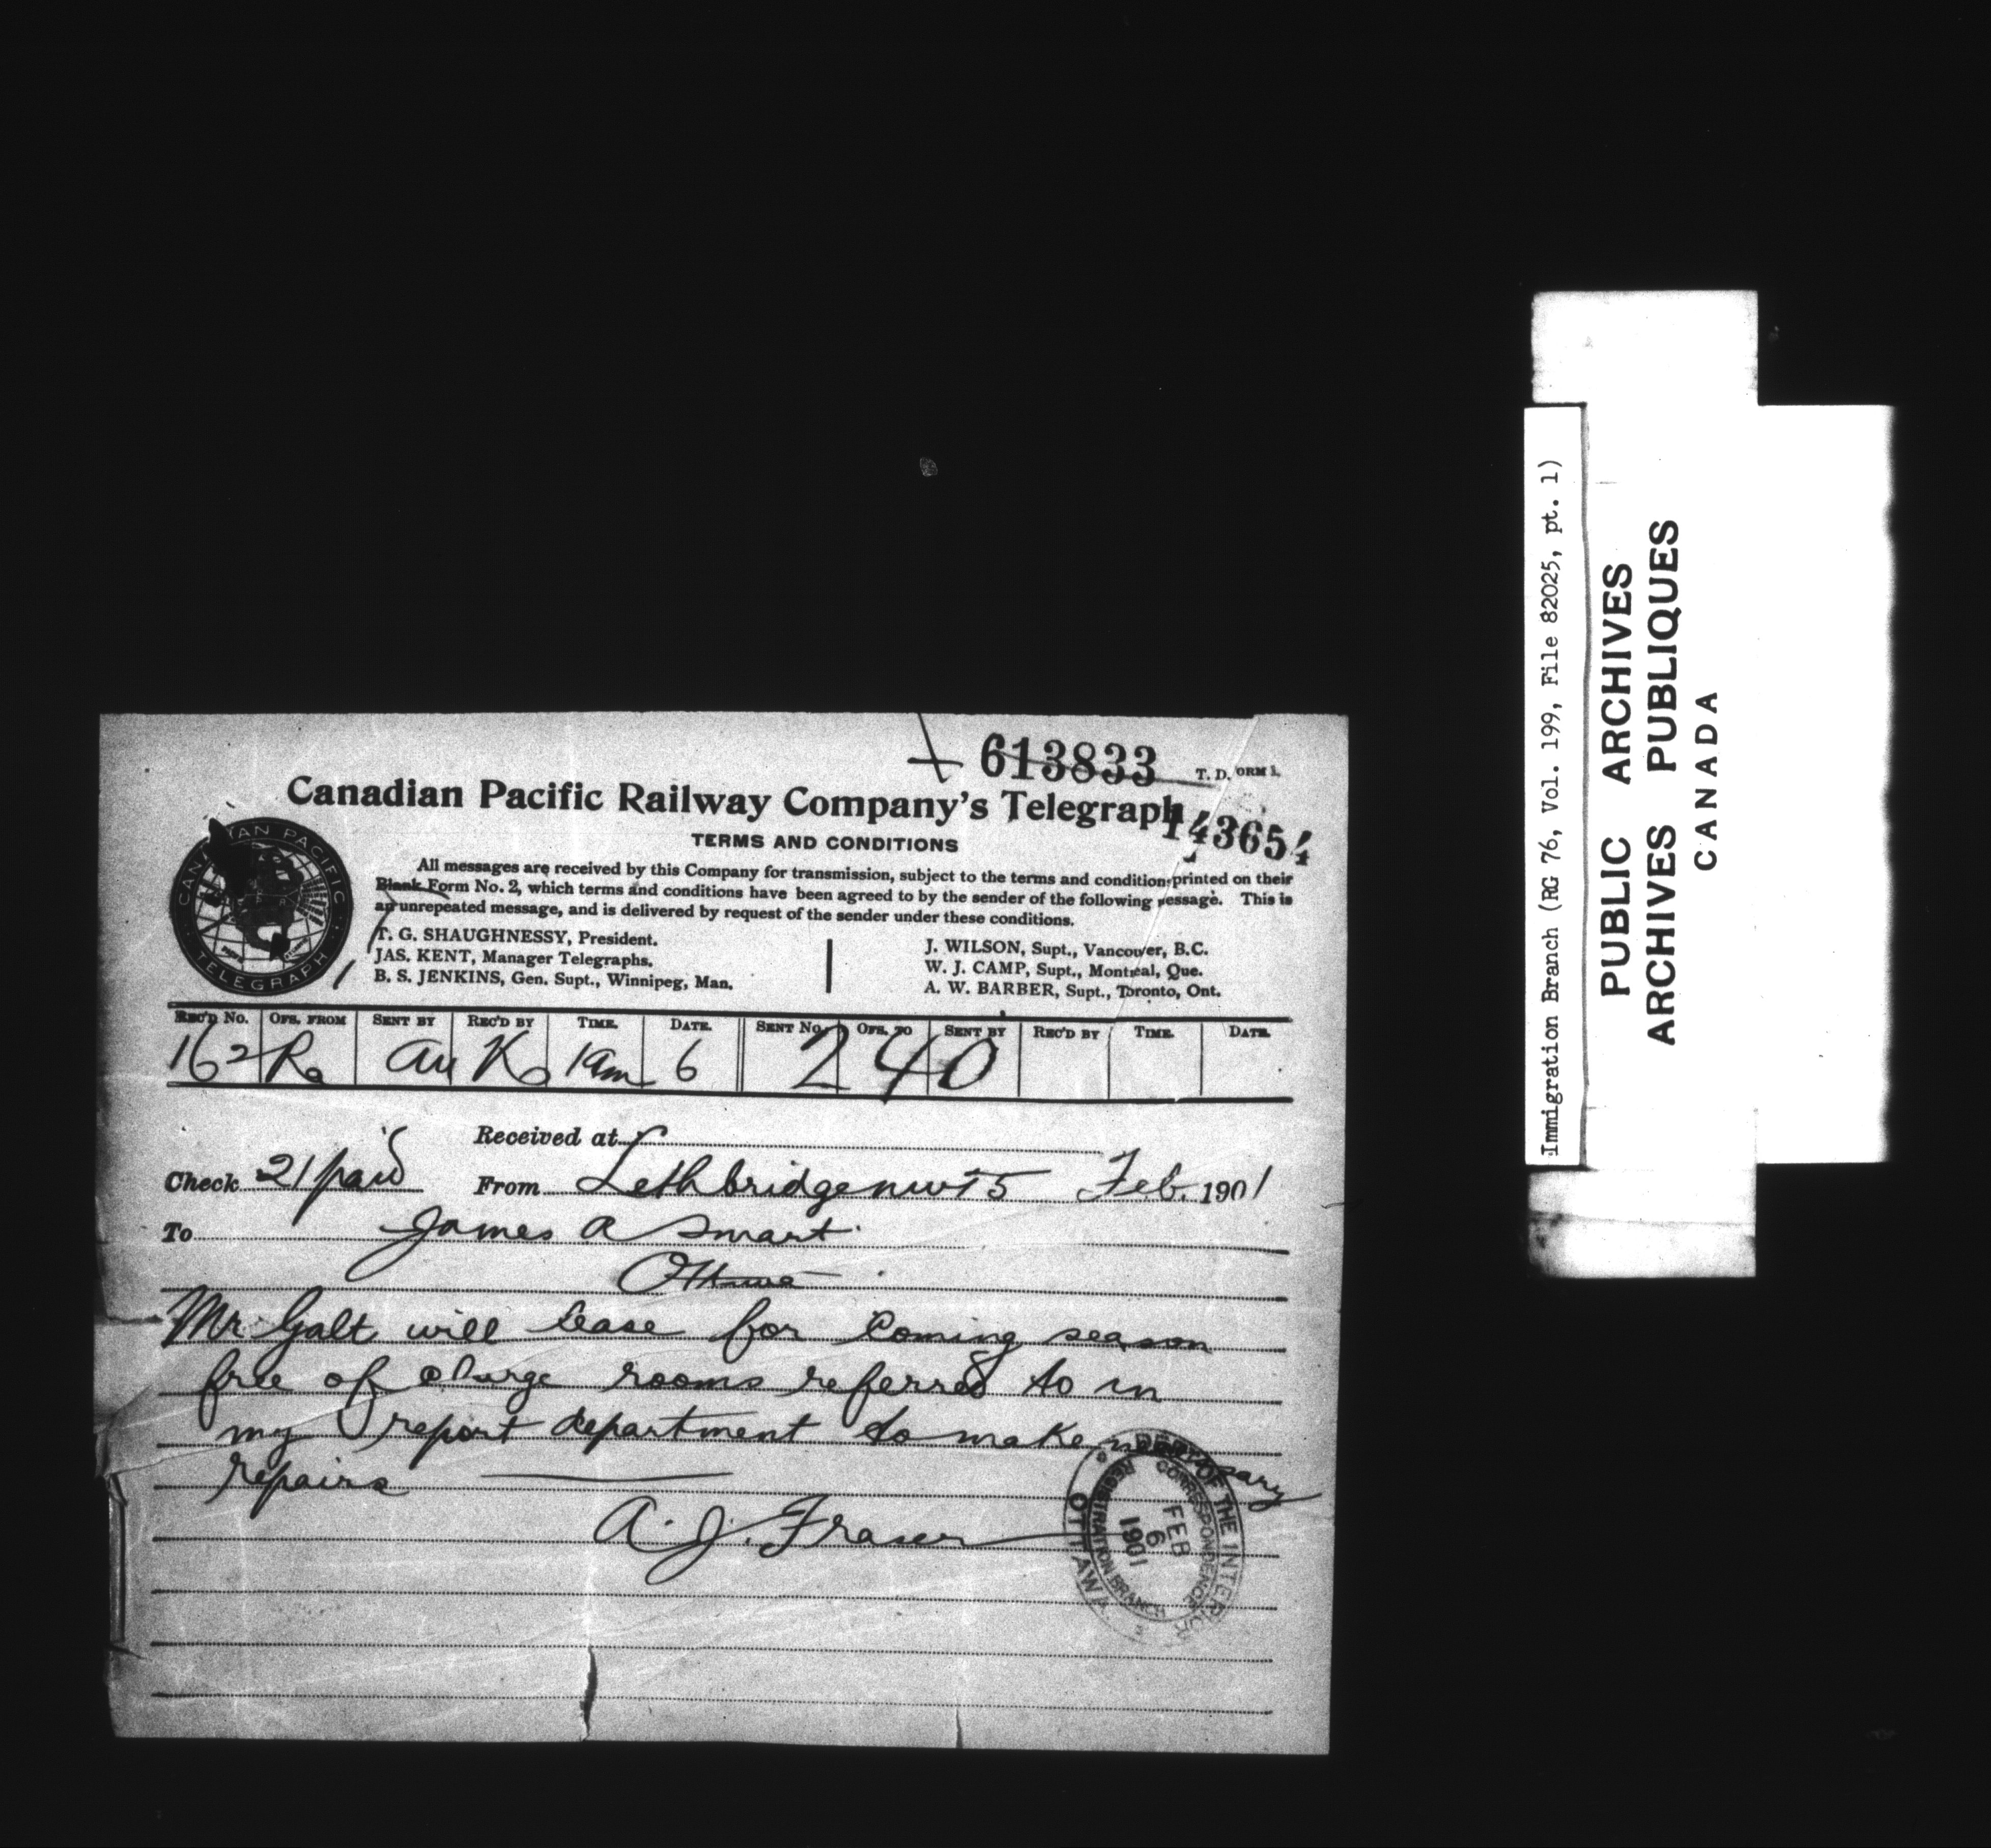 613833
T. D. ORM 1.
Canadian Pacific Railway Company's Telegraph
143654
TERMS AND CONDITIONS
CANADIAN PACIFIC
TELEGRAPH
All messages are received by this Company for transmission, subject to the terms and condition printed on their
Blank Form No. 2, which terms and conditions have been agreed to by the sender of the following essage. This is
an unrepeated message, and is delivered by request of the sender under these conditions.
T. G. SHAUGHNESSY, President.
JAS. KENT, Manager Telegraphs.
B. S. JENKINS, Gen. Supt., Winnipeg, Man.
J. WILSON, Supt., Vancouver, B.C.
W. J. CAMP, Supt., Montreal, Que.
A. W. BARBER, Supt., Toronto, Ont.
REC'D No. OFS. FROM SENT BY REC'D BY TIME. DATE. SENT No. OFS. TO SENT BY REC'D BY TIME. DATE.
162 Ra K 1am 6 240
Received at
Check 21 paid From Lethbridge nwt 5 Feb. 1901
To James A Smart
Ottawa
Mr Galt will lease for coming season
free of charge rooms referred to in
my report department to make necessary
repairs
A. J. Fraser
DEPT. OF THE INTERIOR
OTTAWA
CORRESPONDENCE
REGISTRATION BRANCH
FEB
6
1901
Immigration Branch (RG 76, Vol. 199, File 82025, pt. 1)
PUBLIC ARCHIVES
ARCHIVES PUBLIQUES
CANADA